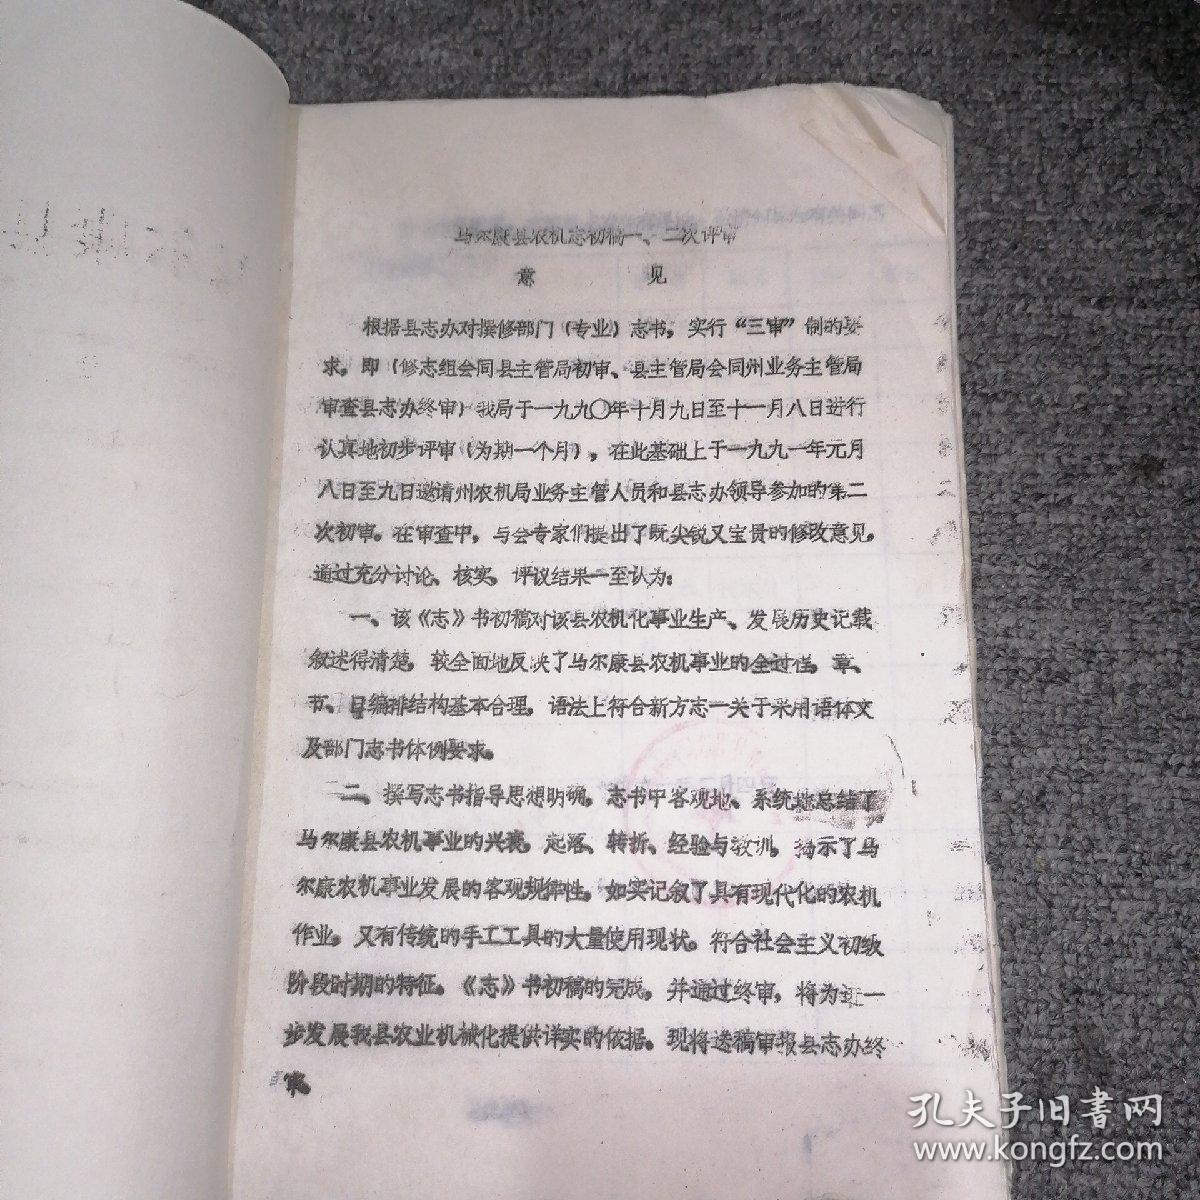 马尔康县农机志初稿一、二次评审
意 见
根据县志办对撰修部门(专业)志书,实行“三审”制的要
求,即(修志组会同县主管局初审、县主管局会同州业务主管局
审查县志办终审)我局于一九九〇年十月九日至十一月八日进行
认真地初步评审(为期一个月),在此基础上于一九九一年元月
八日至九日邀请州农机局业务主管人员和县志办领导参加的第二
次初审。在审查中,与会专家们提出了既尖锐又宝贵的修改意见,
通过充分讨论、核实,评议结果一至认为:
一、该《志》书初稿对该县农机化事业生产、发展历史记载
叙述得清楚,较全面地反映了马尔康县农机事业的全过程,章、
节、目编排结构基本合理,语法上符合新方志一关于采用语体文
及部门志书体例要求。
二、撰写志书指导思想明确,志书中客观地、系统地总结了
马尔康县农机事业的兴衰,起落、转折、经验与教训,揭示了马
尔康农机事业发展的客观规律性,如实记叙了具有现代化的农机
作业,又有传统的手工工具的大量使用现状。符合社会主义初级
阶段时期的特征。《志》书初稿的完成,并通过终审,将为进一
步发展我县农业机械化提供详实的依据。现将送稿审报县志办终
审。
孔夫子旧书网
www.kongfz.com